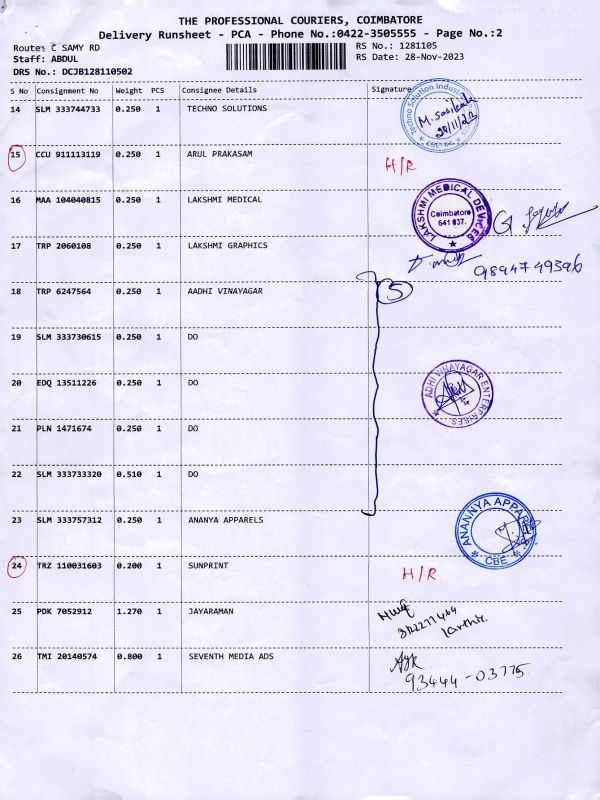 THE PROFESSIONAL COURIERS, COIMBATORE
Delivery Runsheet - PCA - Phone No.:0422-3505555 - Page No.:2
Route: C SAMY RD
RS No.: 1281105
Staff: ABDUL
RS Date: 28-Nov-2023
DRS No.: DCJB128110502
S No Consignment No Weight PCS Consignee Details Signature
14 SLM 333744733 0.250 1 TECHNO SOLUTIONS
Techno Solution
28/11/23
15 CCU 911113119 0.250 1 ARUL PRAKASAM
H/R
16 MAA 104040815 0.250 1 LAKSHMI MEDICAL
LAKSHMI MEDICAL DEVICES
Coimbatore
641 037.
17 TRP 2060108 0.250 1 LAKSHMI GRAPHICS
9894749396
18 TRP 6247564 0.250 1 AADHI VINAYAGAR
5
19 SLM 333730615 0.250 1 DO
20 EDQ 13511226 0.250 1 DO
ADHI VINAYAGAR ENTERPRISES
21 PLN 1471674 0.250 1 DO
22 SLM 333733320 0.510 1 DO
23 SLM 333757312 0.250 1 ANANYA APPARELS
ANANNYA APPARELS
CBE
24 TRZ 110031603 0.200 1 SUNPRINT
H/R
25 PDK 7052912 1.270 1 JAYARAMAN
26 TMI 20140574 0.800 1 SEVENTH MEDIA ADS
93444-03775